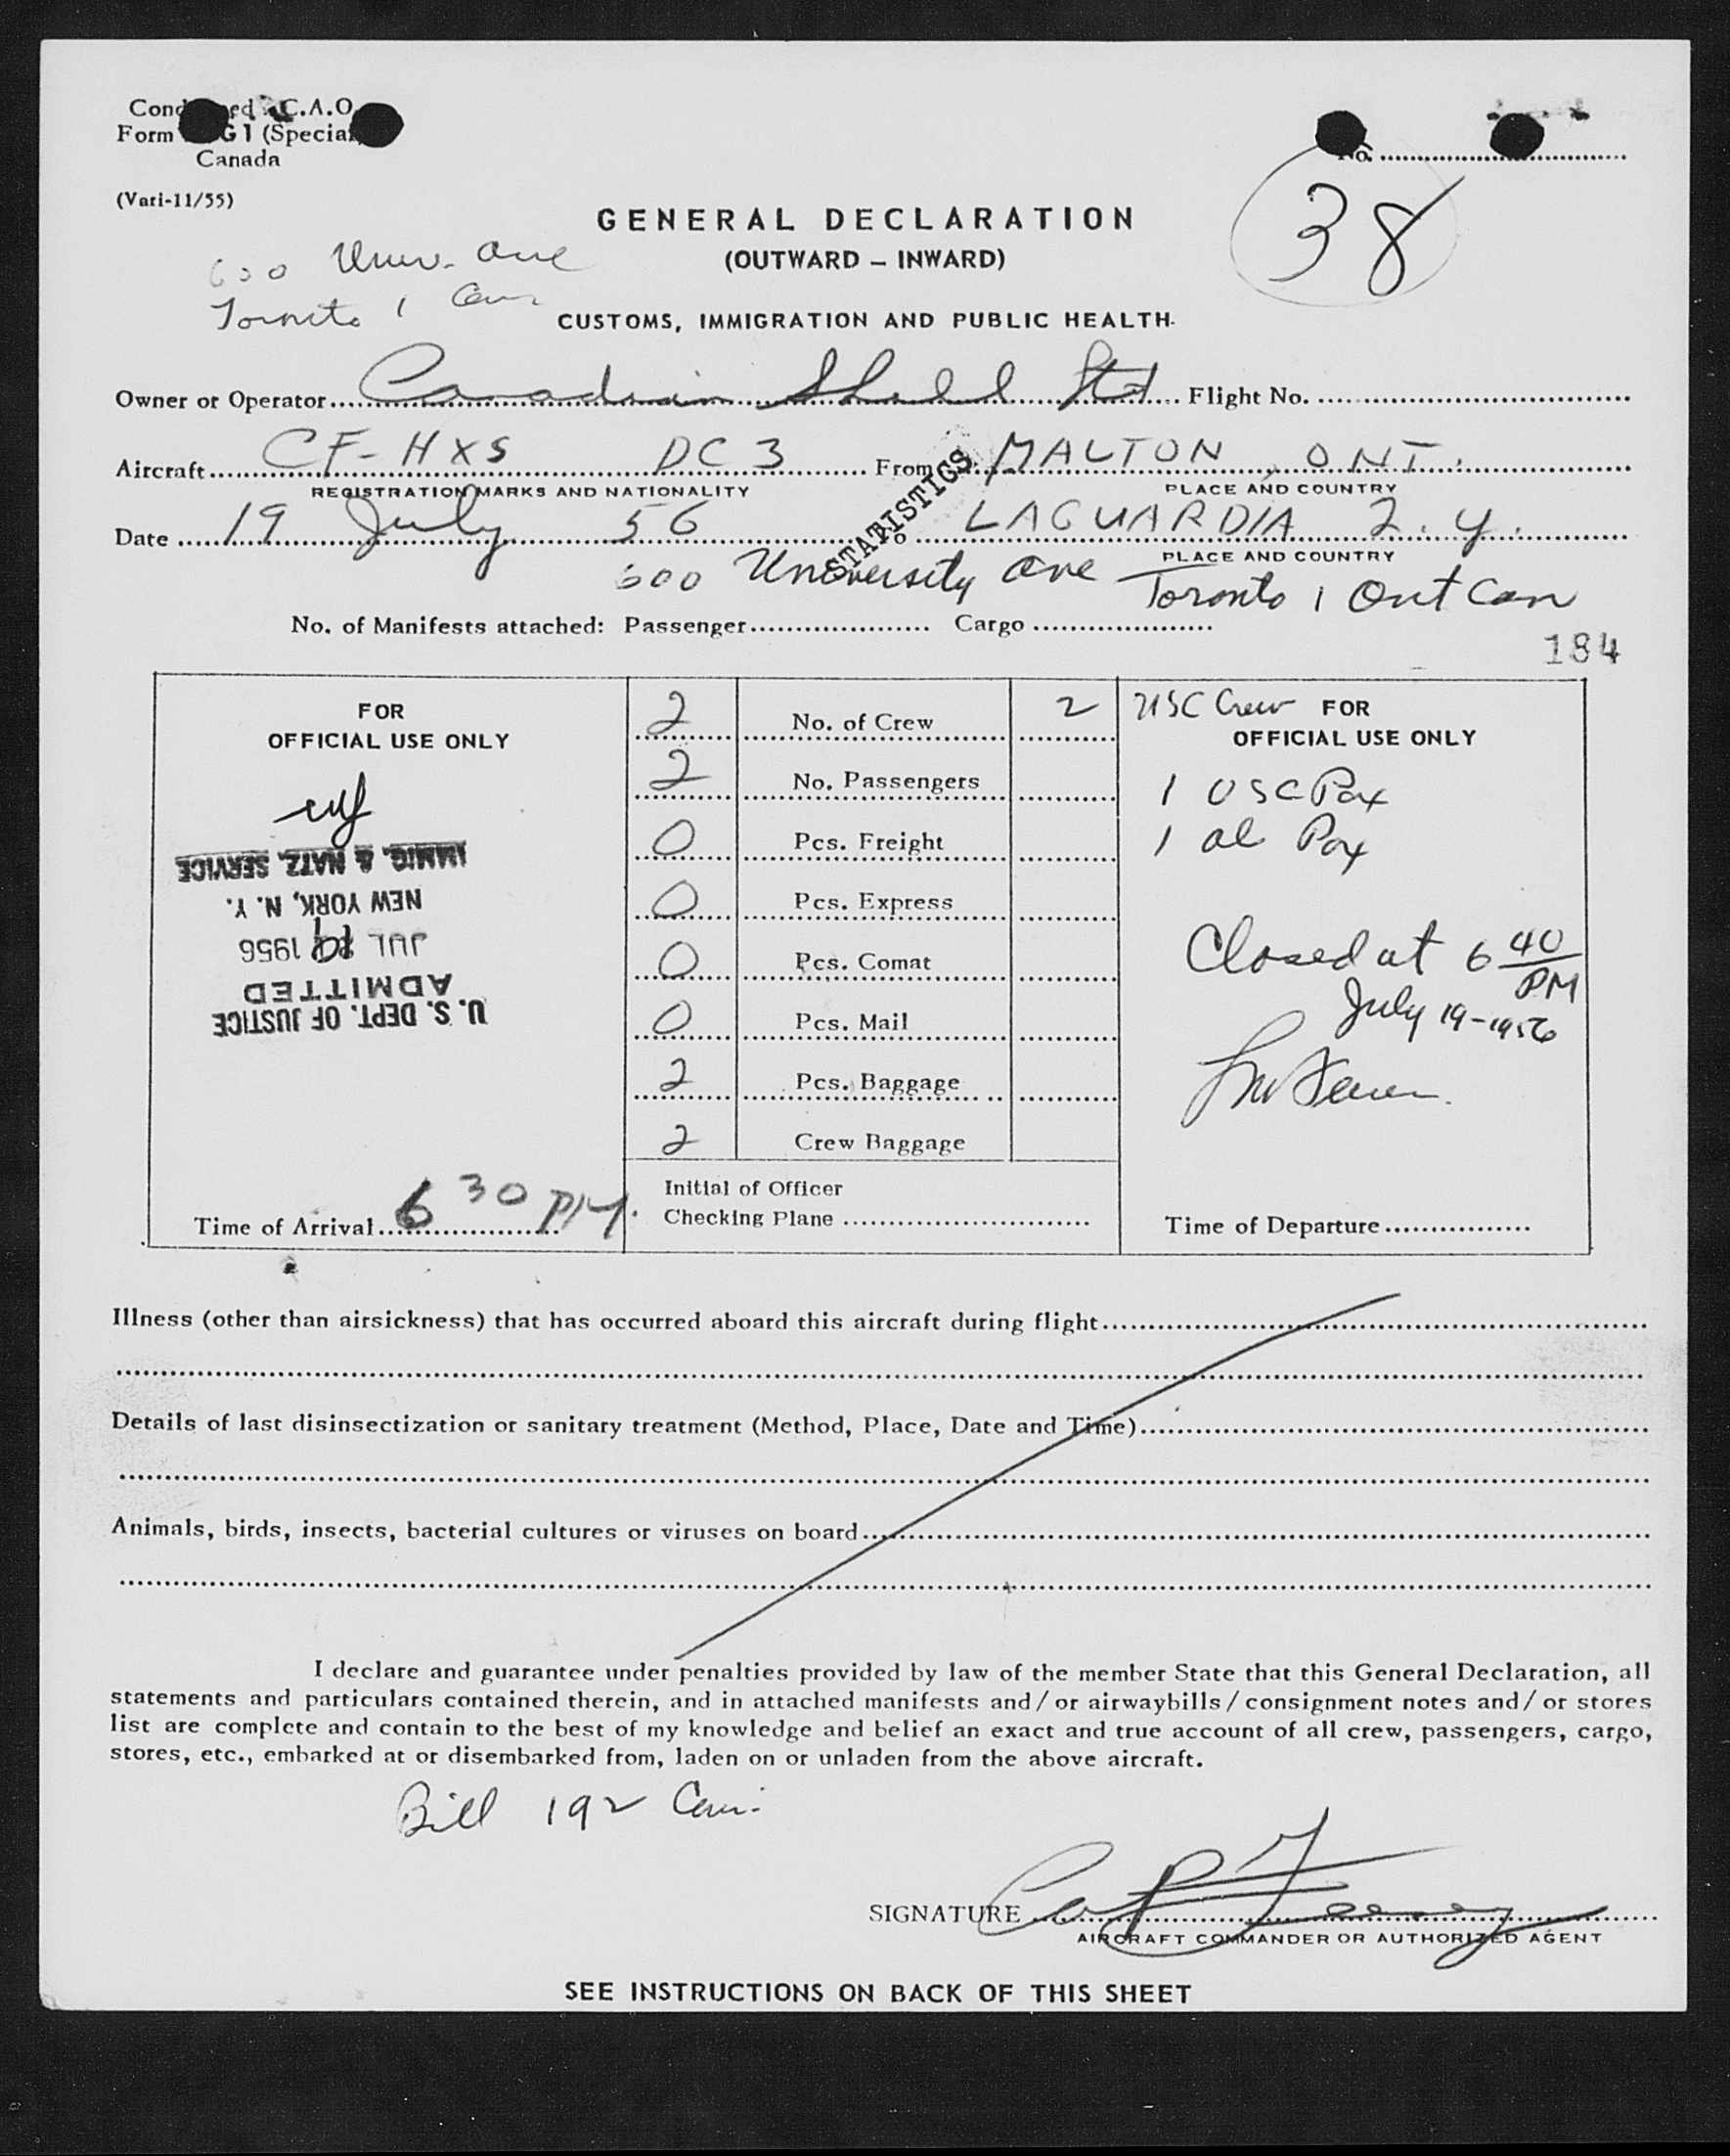 C.A.O.
Form G 1 (Special)
Canada
(Vari-11/55)
No.
38
GENERAL DECLARATION
(OUTWARD – INWARD)
600 Univ. Ave
Toronto 1 Can
CUSTOMS, IMMIGRATION AND PUBLIC HEALTH.
Owner or Operator Canadian Shell Ltd Flight No.
Aircraft CF-HXS DC3 From MALTON, ONT.
REGISTRATION MARKS AND NATIONALITY PLACE AND COUNTRY
STATISTICS
Date 19 July 56 To LAGUARDIA N.Y.
PLACE AND COUNTRY
600 University Ave Toronto 1 Ont Can
No. of Manifests attached: Passenger Cargo
184
FOR
OFFICIAL USE ONLY
IMMIG. & NATZ. SERVICE
NEW YORK, N. Y.
JUL 19 1956
ADMITTED
U. S. DEPT. OF JUSTICE
Time of Arrival 6 30 PM.
2 No. of Crew 2
2 No. Passengers
0 Pcs. Freight
0 Pcs. Express
0 Pcs. Comat
0 Pcs. Mail
2 Pcs. Baggage
2 Crew Baggage
Initial of Officer
Checking Plane
USC Crew FOR
OFFICIAL USE ONLY
1 USC Pax
1 al Pax
Closed at 6 40 PM
July 19-1956
Time of Departure
Illness (other than airsickness) that has occurred aboard this aircraft during flight
Details of last disinsectization or sanitary treatment (Method, Place, Date and Time)
Animals, birds, insects, bacterial cultures or viruses on board
I declare and guarantee under penalties provided by law of the member State that this General Declaration, all
statements and particulars contained therein, and in attached manifests and/or airwaybills/consignment notes and/or stores
list are complete and contain to the best of my knowledge and belief an exact and true account of all crew, passengers, cargo,
stores, etc., embarked at or disembarked from, laden on or unladen from the above aircraft.
Bill 192
SIGNATURE
AIRCRAFT COMMANDER OR AUTHORIZED AGENT
SEE INSTRUCTIONS ON BACK OF THIS SHEET